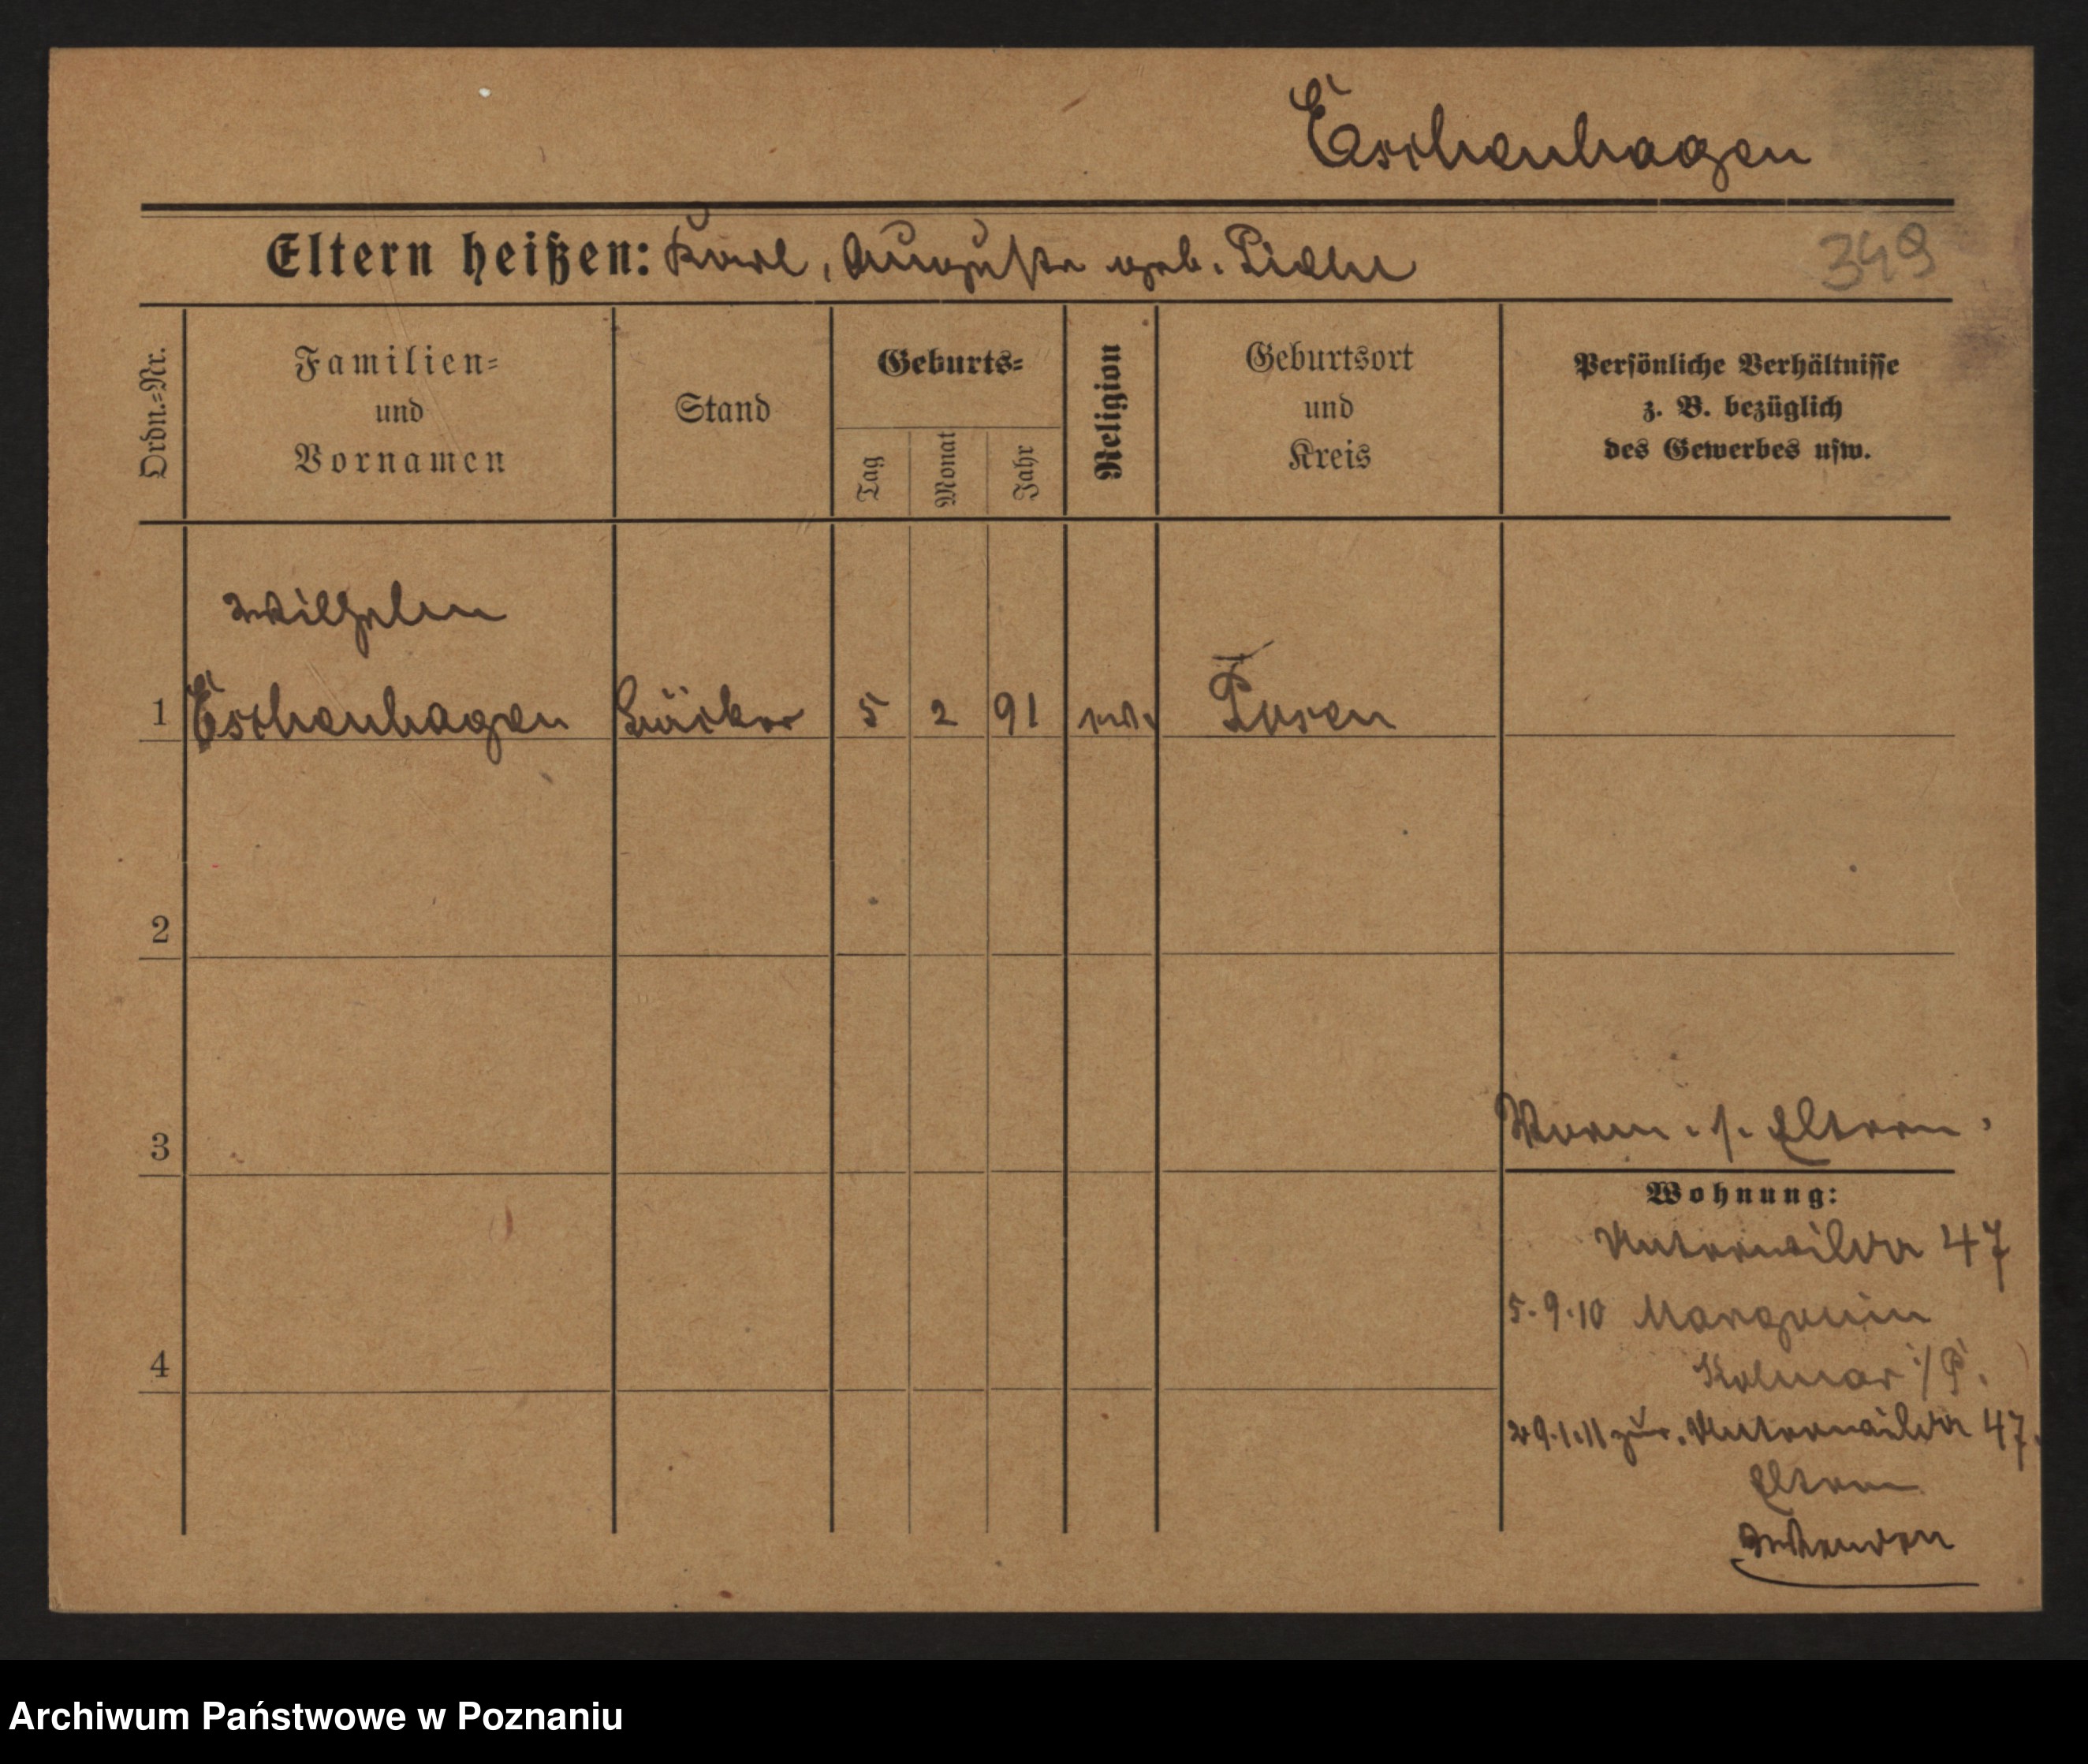 Eschenhagen
Eltern heißen: Karl, Auguste geb.
349
Ordn.=Nr.
Familien=
und
Vornamen
Stand
Geburts=
Tag
Monat
Jahr
Religion
Geburtsort
und
Kreis
Persönliche Verhältnisse
z. B. bezüglich
des Gewerbes usw.
Wilhelm
1 Eschenhagen Bäcker 5 2 91 ev. Posen
2
3
Eltern
Wohnung:
Unterwilda 47
5.9.10 Margonin
4
Kolmar i/P.
29.1.11 zur. Unterwilda 47.
Eltern
Archiwum Państwowe w Poznaniu